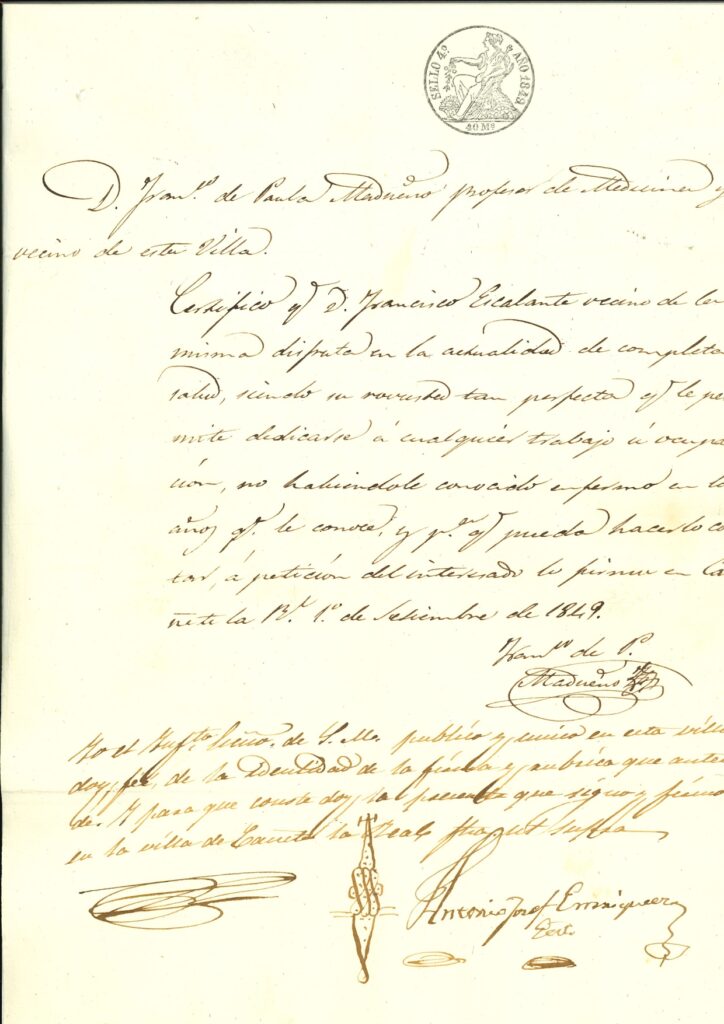 SELLO 4º AÑO 1849.
40 Ms
D. Franco. de Paula Madueño profesor de Medicina y
vecino de esta Villa.
Certifico qe. D. Francisco Escalante vecino de la
misma disfruta en la actualidad de completa
salud, siendo su rovusted tan perfecta qe. le per
mite dedicarse á cualquiér trabajo ú ocupa
ción, no habiendole conocido enfermo en los
años qe. le conoce, y pa. qe. pueda hacerlo co
tar, á petición del interesado lo firmo en Ca
ñete la Rl. 1º de Setiembre de 1849.
Franco de P.
Madueño
Yo el de S. M. publico y unico en esta villa
doy fee, de la Identidad de la firma y rubrica que antece
de. Y para que conste doy la presente que signo y firmo
en la villa de Cañete la Real fha. ut supra
Antonio Josef Enrriquez